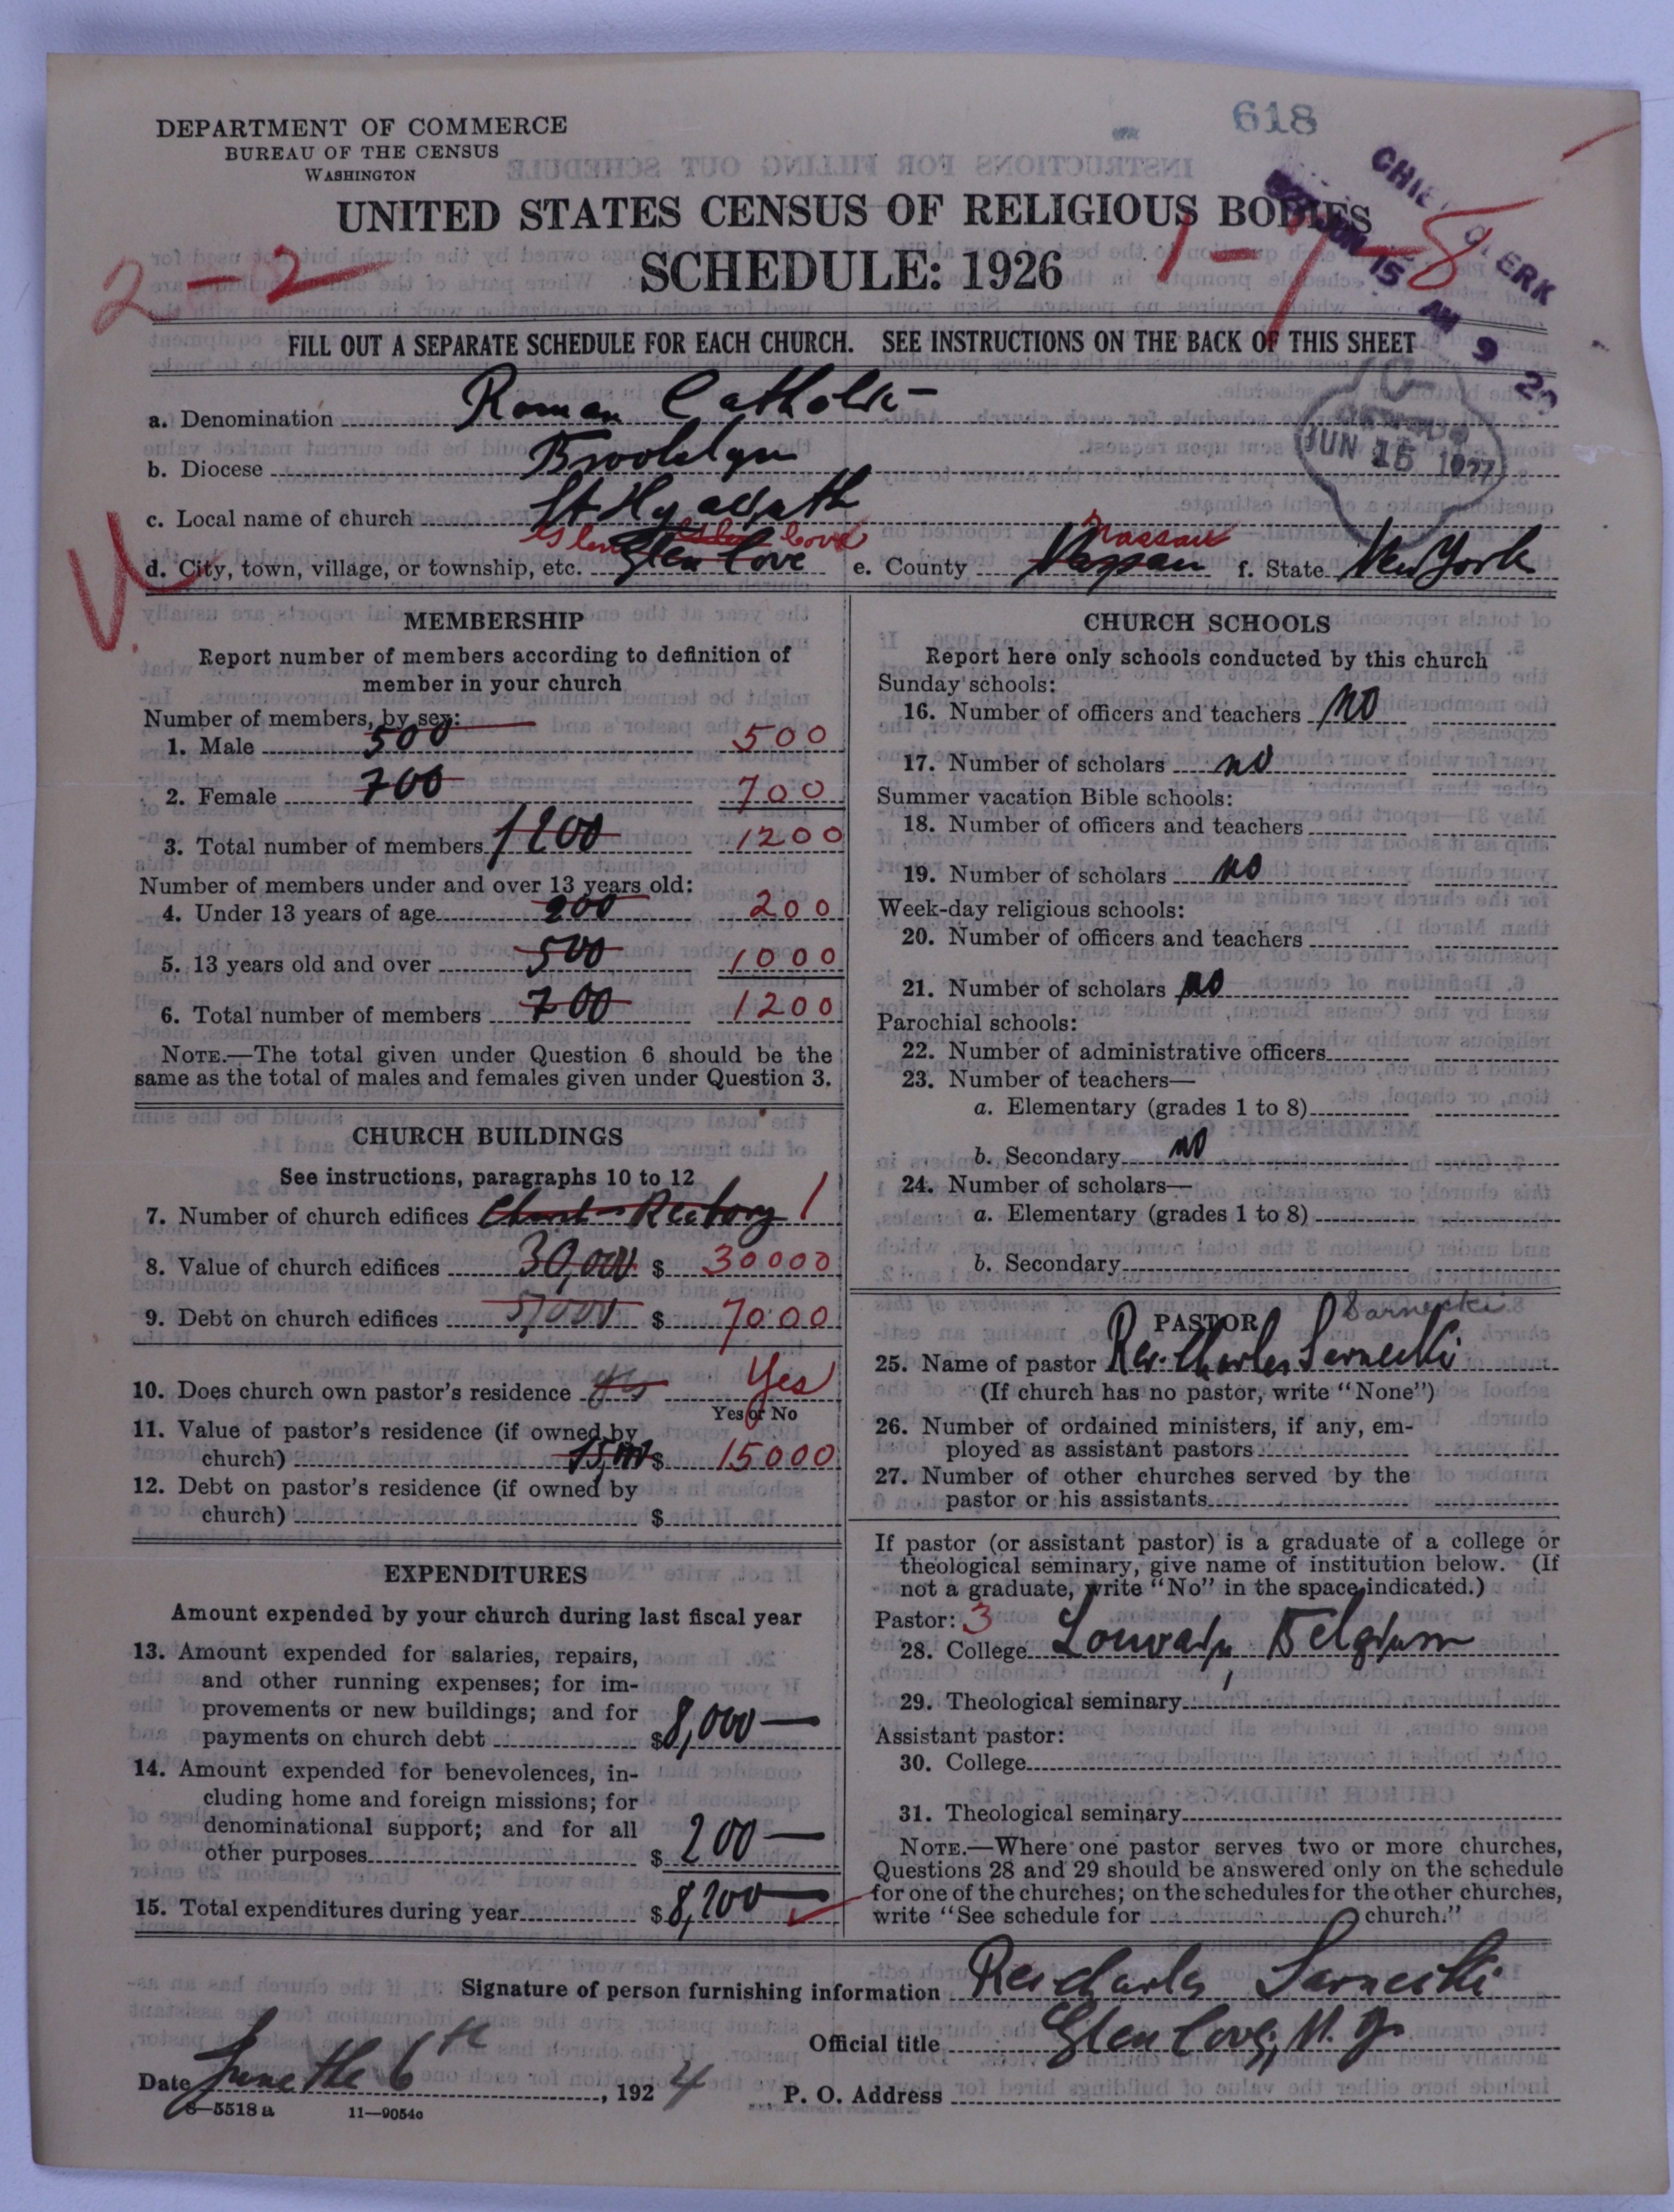 618
DEPARTMENT OF COMMERCE
BUREAU OF THE CENSUS
WASHINGTON
UNITED STATES CENSUS OF RELIGIOUS BODIES
SCHEDULE: 1926
2-2
1-7-8
CHIEF CLERK
JUN 15 AM 9
JUN 16 1927
FILL OUT A SEPARATE SCHEDULE FOR EACH CHURCH. SEE INSTRUCTIONS ON THE BACK OF THIS SHEET
a. Denomination Roman Catholic
b. Diocese Brooklyn
c. Local name of church St Hyacinth
Glen Cove Nassau
d. City, town, village, or township, etc. Glen Cove e. County Nassau f. State New York
V.
MEMBERSHIP
Report number of members according to definition of
member in your church
Number of members, by sex:
1. Male 500 500
2. Female 700 700
3. Total number of members 1200 1200
Number of members under and over 13 years old:
4. Under 13 years of age 200 200
5. 13 years old and over 500 1000
6. Total number of members 700 1200
NOTE.—The total given under Question 6 should be the
same as the total of males and females given under Question 3.
CHURCH BUILDINGS
See instructions, paragraphs 10 to 12
7. Number of church edifices Church-Rectory 1
8. Value of church edifices 30,000 $ 30000
9. Debt on church edifices $ 7000
10. Does church own pastor's residence yes Yes
Yes or No
11. Value of pastor's residence (if owned by
church) 15,000 $ 15000
12. Debt on pastor's residence (if owned by
church) $
EXPENDITURES
Amount expended by your church during last fiscal year
13. Amount expended for salaries, repairs,
and other running expenses; for im-
provements or new buildings; and for
payments on church debt $ 8,000—
14. Amount expended for benevolences, in-
cluding home and foreign missions; for
denominational support; and for all
other purposes $ 200—
15. Total expenditures during year $ 8,200—
CHURCH SCHOOLS
Report here only schools conducted by this church
Sunday schools:
16. Number of officers and teachers no
17. Number of scholars no
Summer vacation Bible schools:
18. Number of officers and teachers
19. Number of scholars no
Week-day religious schools:
20. Number of officers and teachers
21. Number of scholars no
Parochial schools:
22. Number of administrative officers
23. Number of teachers—
a. Elementary (grades 1 to 8)
b. Secondary no
24. Number of scholars—
a. Elementary (grades 1 to 8)
b. Secondary
PASTOR Sarnecki
25. Name of pastor Rev. Charles Sarnecki
(If church has no pastor, write "None")
26. Number of ordained ministers, if any, em-
ployed as assistant pastors
27. Number of other churches served by the
pastor or his assistants
If pastor (or assistant pastor) is a graduate of a college or
theological seminary, give name of institution below. (If
not a graduate, write "No" in the space indicated.)
Pastor: 3
28. College Louvain, Belgium
29. Theological seminary
Assistant pastor:
30. College
31. Theological seminary
NOTE.—Where one pastor serves two or more churches,
Questions 28 and 29 should be answered only on the schedule
for one of the churches; on the schedules for the other churches,
write "See schedule for church."
Signature of person furnishing information Rev Charles Sarnecki
Official title Glen Cove, N. Y.
Date June the 6th, 1924 P. O. Address
8—5518a 11—9054c